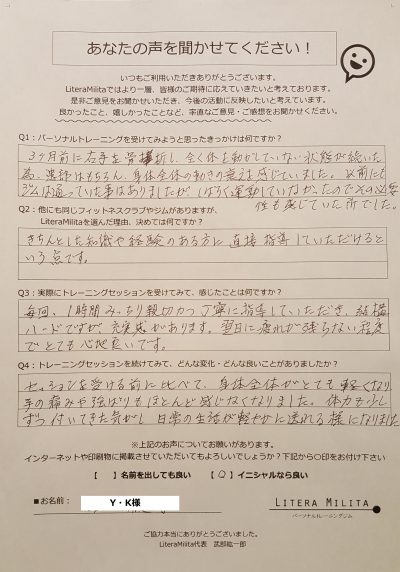 あなたの声を聞かせてください！
いつもご利用いただきありがとうございます。
LiteraMilitaではより一層、皆様のご期待に応えていきたいと考えております。
是非ご意見をお聞かせいただき、今後の活動に反映したいと考えています。
良かったこと、嬉しかったことなど、率直なご意見・ご感想をお聞かせください。
Q1：パーソナルトレーニングを受けてみようと思ったきっかけは何ですか？
3ヶ月前に右手を骨折し、全く体を動かしていない状態が続いた
為、患部はもちろん、身体全体の動きの衰えを感じていました。以前にも
ジムは通っていた事はありましたが、しばらく運動していなかったのでその必要
性も感じていた所でした。
Q2：他にも同じフィットネスクラブやジムがありますが、
LiteraMilitaを選んだ理由、決めては何ですか？
きちんとした知識や経験のある方に直接指導していただけると
いう点です。
Q3：実際にトレーニングセッションを受けてみて、感じたことは何ですか？
毎回、1時間みっちり親切かつ丁寧に指導していただき、結構
ハードですが、充実感があります。翌日に疲れが残らない程度
でとても心地良いです。
Q4：トレーニングセッションを続けてみて、どんな変化・どんな良いことがありましたか？
セッションを受ける前に比べて、身体全体がとても軽くなり
手の痛みや強ばりもほとんど感じなくなりました。体力も少し
ずつ付いてきた気がし、日常の生活が軽やかに送れる様になりました
※上記のお声についてお願いがあります。
インターネットや印刷物に掲載させていただいてもよろしいでしょうか？下記から○印をお付け下さい
【　】名前を出しても良い　【○】イニシャルなら良い
■お名前： Y・K様
LITERA MILITA
パーソナルトレーニングジム
ご協力本当にありがとうございました。
LiteraMilita代表　武部紘一郎